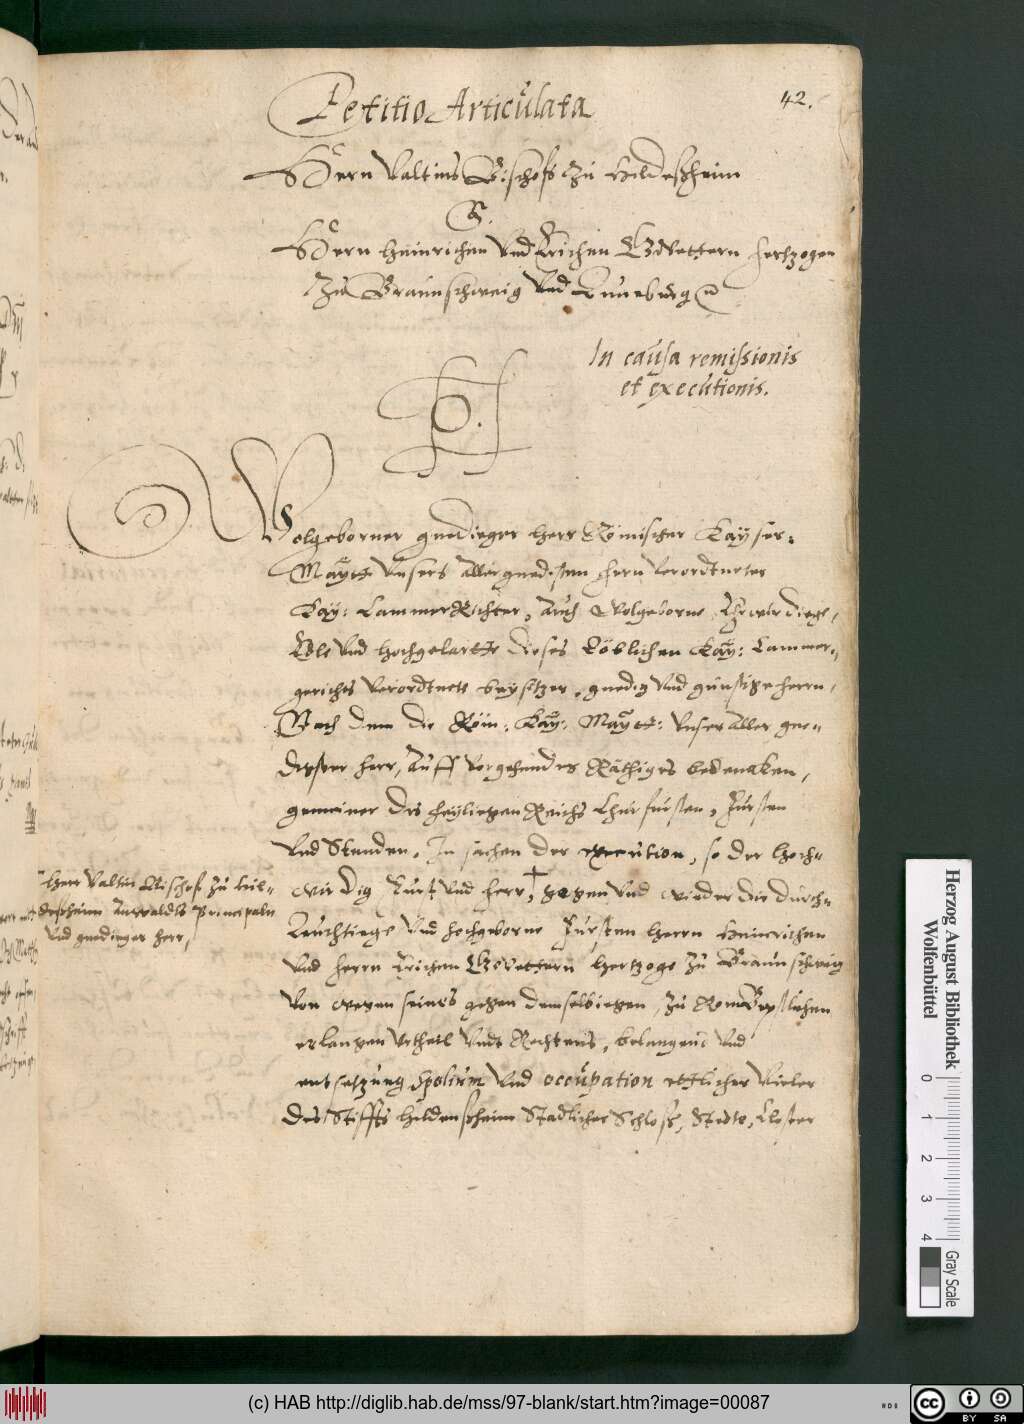 42.
Petitio Articulata
Hern Valtins Bischofs zu Hildeßheim
C.
Hern Heinrichen Vnd Erichen Gevettern Hertzogen
Zu Braunschweig Vnd Luneburg
In causa remissionis
et executionis.
Wolgeborner gnediger Herr Römischer Kayser-
Maytt Vnsers allergnedisten Hern Verordneter
Kay: Cammer Richter, Auch Wolgeborne, Ehrwirdige,
Edle Vnd Hochgelartte dieses Löblichen Kay: Cammer-
gerichts Verordnete beysitzer, gnedig Vnd günstige Herrn,
Nach dem die Röm: Kay: Maytt: Vnser Aller gne-
digster Herr, Auff Vorgehendes Räthiges bedencken,
gemeiner des Heyligen Reichs Churfürsten, Fürsten
Vnd Stenden, In sachen der execution, so der Hoch-
wirdig Fürst Vnd Herr, † gegen Vnd wieder die Durch-
Leuchtige Vnd Hochgeborne Fürsten Herrn Heinrichen
Vnd Herrn Erichen Gevettern Hertzoge zu Braunschweig
Von wegen seines gegen denselbiegen, zu Rom
erlangen Vrtheil Vnds Rechtens, belangend Vnd
entsetzung Spolium Vnd occupation etlicher Vieler
des Stiffts Hildenßheim Stadlicher Schloß, Stedte, Closter
Herr Valtin Bischof zu Hil-
deßheim Anwaldts Principaln
Vnd gnediger Herr,
Herzog August Bibliothek
Wolfenbüttel
0 1 2 3 4
Gray Scale
(c) HAB http://diglib.hab.de/mss/97-blank/start.htm?image=00087
cc BY SA